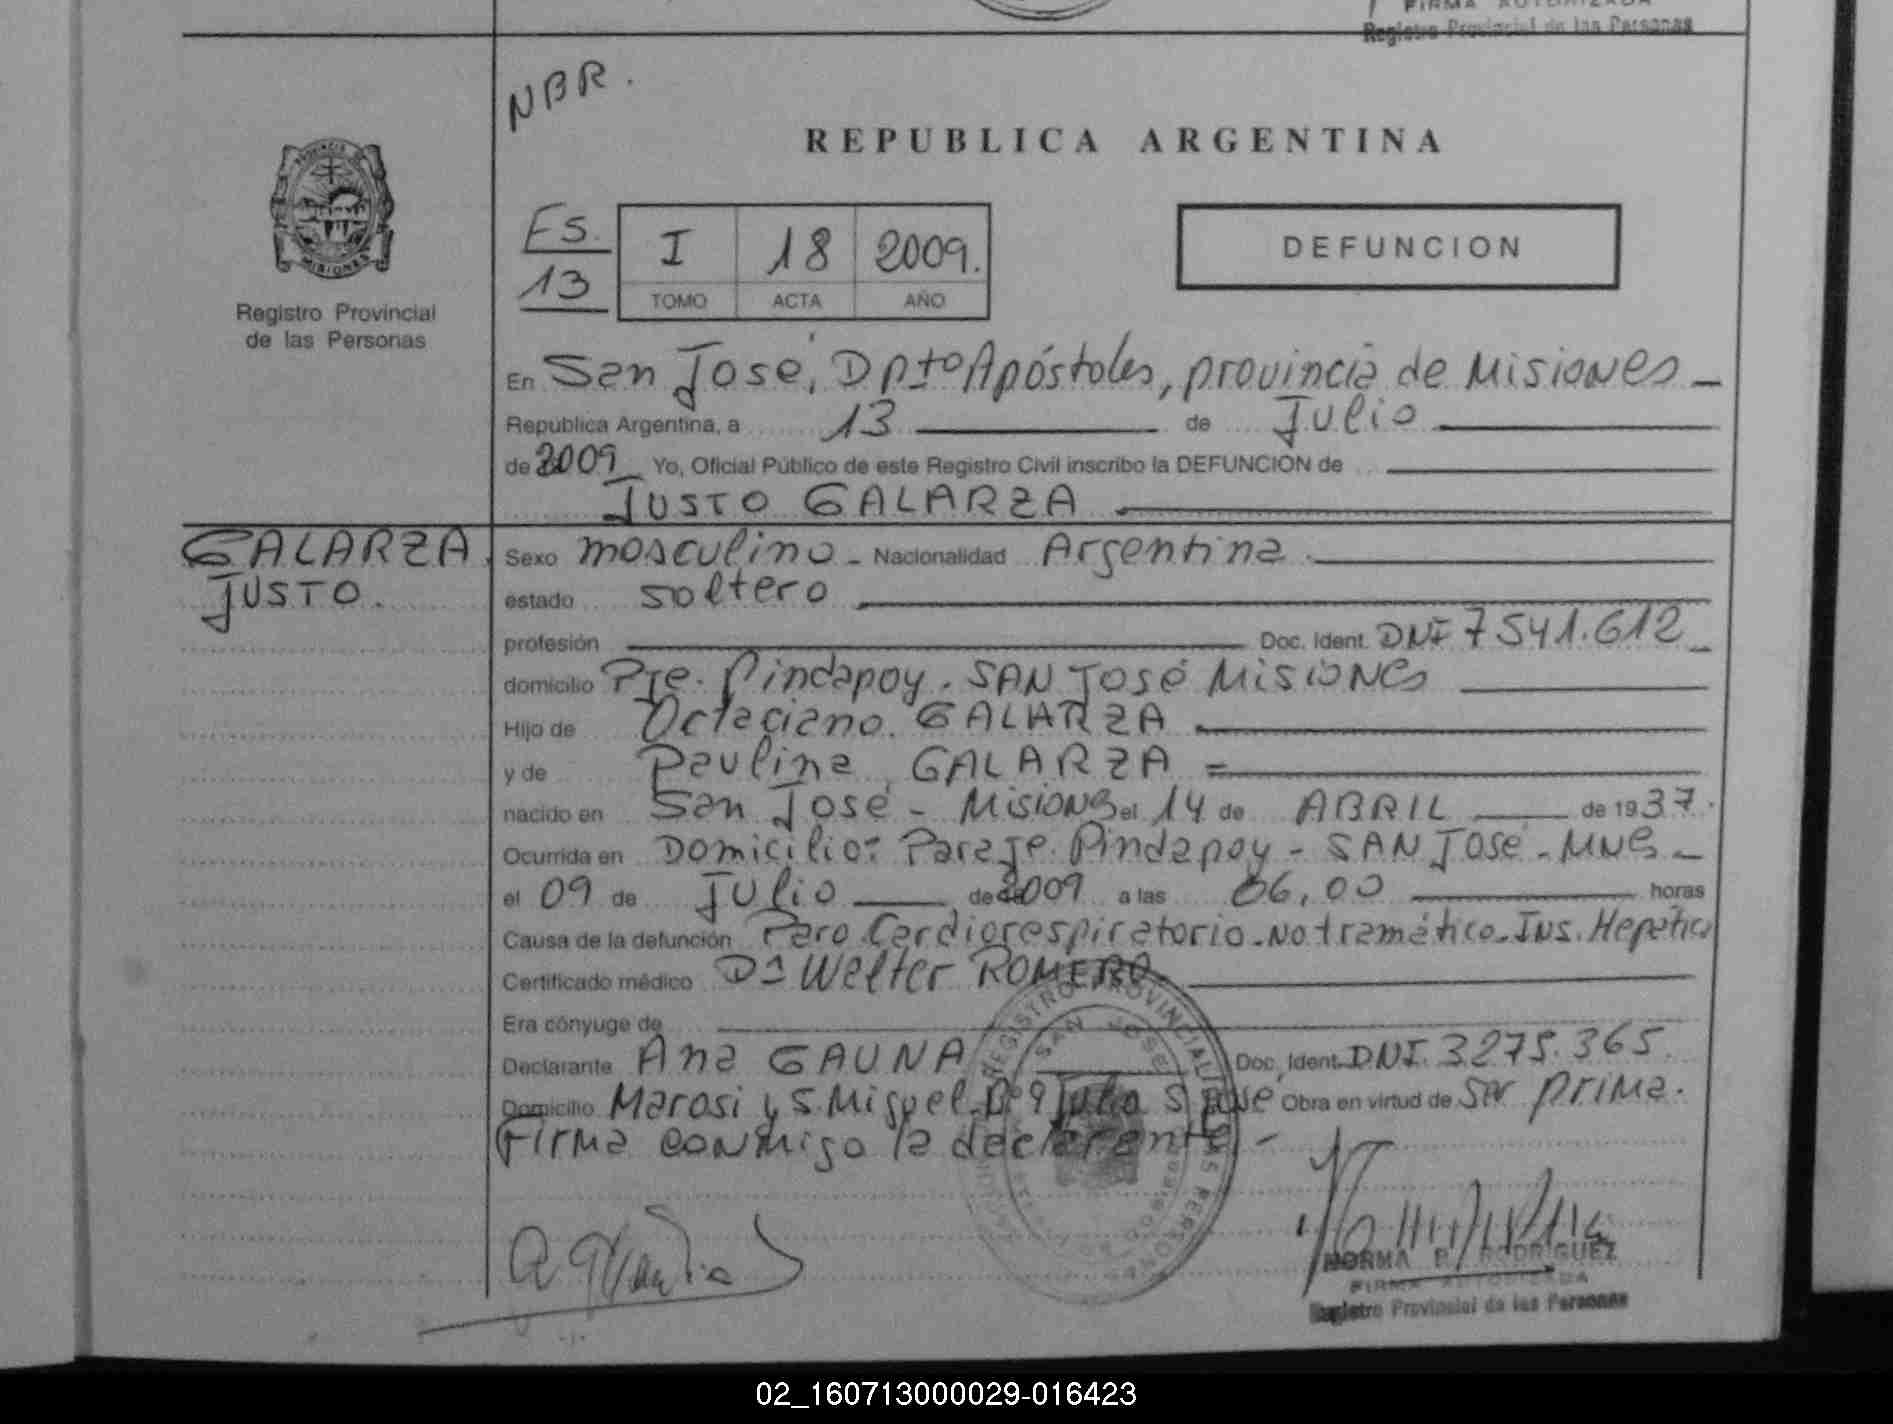 FIRMA AUTORIZADA
Registro Provincial de las Personas
NBR.
REPUBLICA ARGENTINA
PROVINCIA DE
MISIONES
Registro Provincial
de las Personas
Fs.
13
I 18 2009.
TOMO ACTA AÑO
DEFUNCION
En San José, Dpto Apóstoles, provincia de Misiones
República Argentina, a 13 de Julio
de 2009 Yo, Oficial Público de este Registro Civil inscribo la DEFUNCION de
JUSTO GALARZA
GALARZA
JUSTO.
Sexo masculino - Nacionalidad Argentina
estado soltero
profesión Doc. Ident. DNI 7541.612
domicilio Pje. Pindapoy. SAN José Misiones
Hijo de Octaciano GALARZA
y de Paulina GALARZA
nacido en San José - Misiones el 14 de ABRIL de 1937.
Ocurrida en Domicilio: Paraje Pindapoy - SAN José - Mnes
el 09 de Julio de 2009 a las 06,00 horas
Causa de la defunción Paro Cardiorespiratorio - No tramático - Ins. Hepática
Certificado médico Dr Walter ROMERO.
Era cónyuge de
Declarante Ana GAUNA Doc. Ident. DNI. 3275.365.
Domicilio Marosi y S. Miguel Bº 9 Julio S José Obra en virtud de Ser prima.
Firma conmigo la declarante -
REGISTRO PROVINCIAL DE LAS PERSONAS
SAN JOSE
NORMA B. RODRIGUEZ
FIRMA AUTORIZADA
Registro Provincial de las Personas
02_160713000029-016423